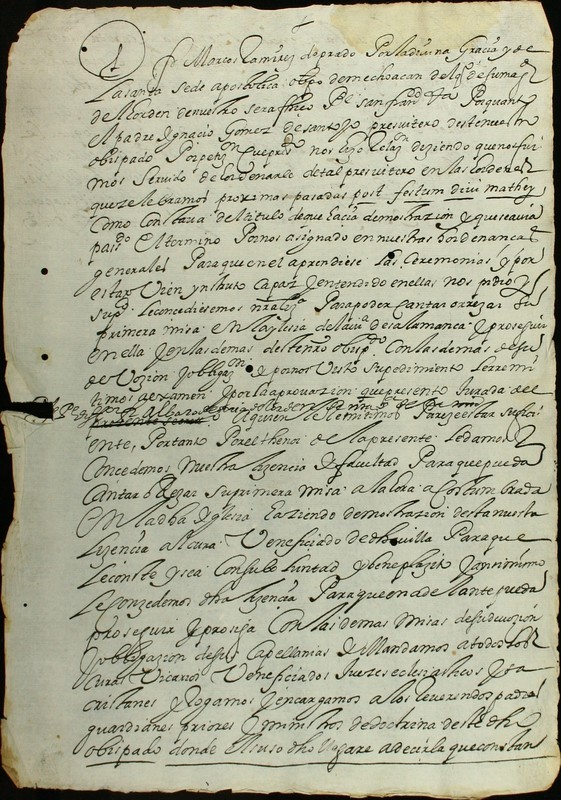 1 fr Marcos Ramirez de prado Por la divina Gracia y de
La santa sede apostolica obpo de mechoacan del Qº de su magd
de la orden de nuestro serafico Pe san franco &a Porquanto
El padre Ygnacio Gomez de santo presvitero deste nuestro
obispado Por petizn que pres nos hizo relazn diziendo que nos fui
mos Servido de hordenarle de tal presvitero en las hordenes
que zelebramos proximas pasadas post festum divi mathei
Como Constava del titulo de que hacia demostrazion y que se avia
pasdo El termino Por nos asignado en nuestras hordenancas
generales Para que en el aprendiese las Ceremonias y por
estar Vien ynstruto Capaz y entendido en ellas nos pidio y
supco le concediesemos nra liza Para poder Cantar o rezar su
primera misa en la yglesia de la via de salamanca y proseguir
en ella y en las demas deste nro obispdo Con las demas de su
devozion y obligazn e por nos Visto su pedimiento le remi
timos a examen y por la aprovazion que presento jurada del
a quien le Remitimos Pareze estar sufici
ente, Portanto Por el thenor de la presente le damos y
Concedemos nuestra lizencia y facultad Para que pueda
Cantar o Rezar su primera misa a la hora acostumbrada
En la dha Yglesia haziendo demostrazion desta nuestra
lizencia al cura Veneficiado de dha villa Para que
le conste y sea Con su boluntad y beneplazito y asi mismo
le conzedemos dha lizencia Para que en adelante pueda
proseguir y prosiga Con las demas misas de su devozion
y obligazion de sus Capellanias y Mandamos a todos los
curas Vicarios Veneficiados Juezes eclesiasticos y sa
cristanes y Rogamos y encargamos a los Reverendos padres
guardianes priores o ministros de dotrina deste dho
obispado donde el suso dho llegare a decirla que constan